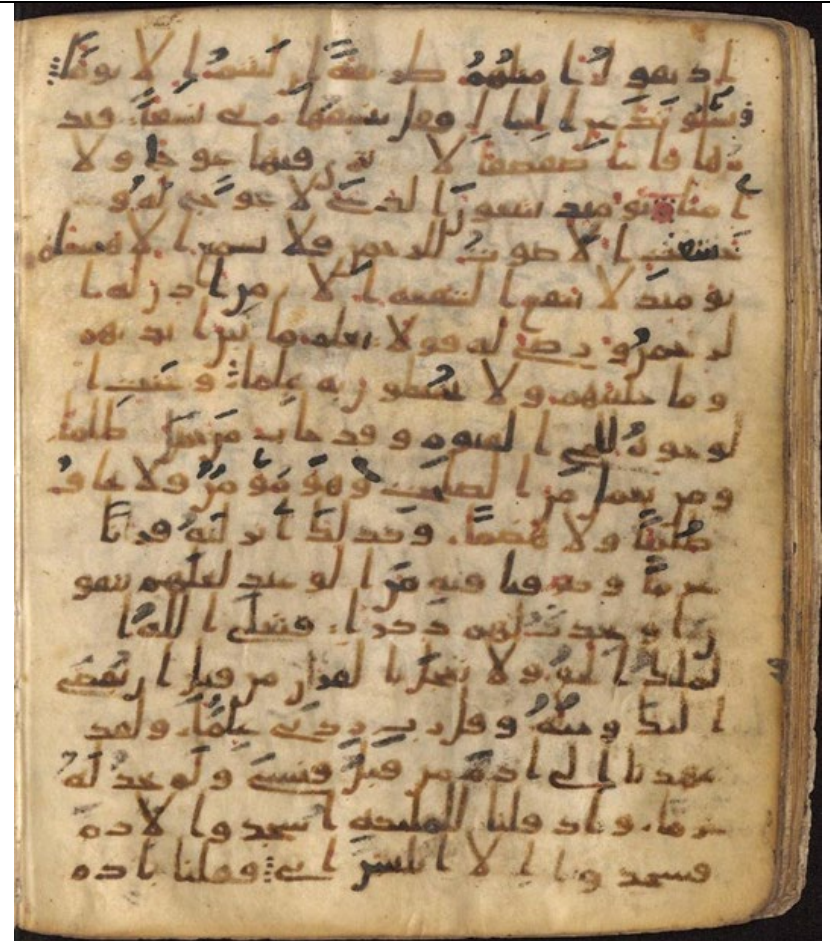 اذ يقول امثلهم طريقة ان لبثتم الا يوما
ويسلونك عن الجبال فقل ينسفها ربي نسفا فيذ
رها قاعا صفصفا لا ترى فيها عوجا ولا
امتا يومئذ يتبعون الداعي لا عوج له و
خشعت الاصوت للرحمن فلا تسمع الا همسا
يومئذ لا تنفع الشفعة الا من اذن له ا
لرحمن ورضي له قولا يعلم ما بين ايديهم
وما خلفهم ولا يحيطون به علما وعنت ا
لوجوه للحي القيوم وقد خاب من حمل ظلما
ومن يعمل من الصلحت وهو مؤمن فلا يخاف
ظلما ولا هضما وكذلك انزلنه قرانا
عربيا وصرفنا فيه من الوعيد لعلهم يتقو
ن او يحدث لهم ذكرا فتعلى الله ا
لملك الحق ولا تعجل بالقران من قبل ان يقضى
اليك وحيه وقل رب زدني علما ولقد
عهدنا الى ادم من قبل فنسي ولم نجد له
عزما واذ قلنا للملئكة اسجدوا لادم
فسجدوا الا ابليس ابى فقلنا يادم